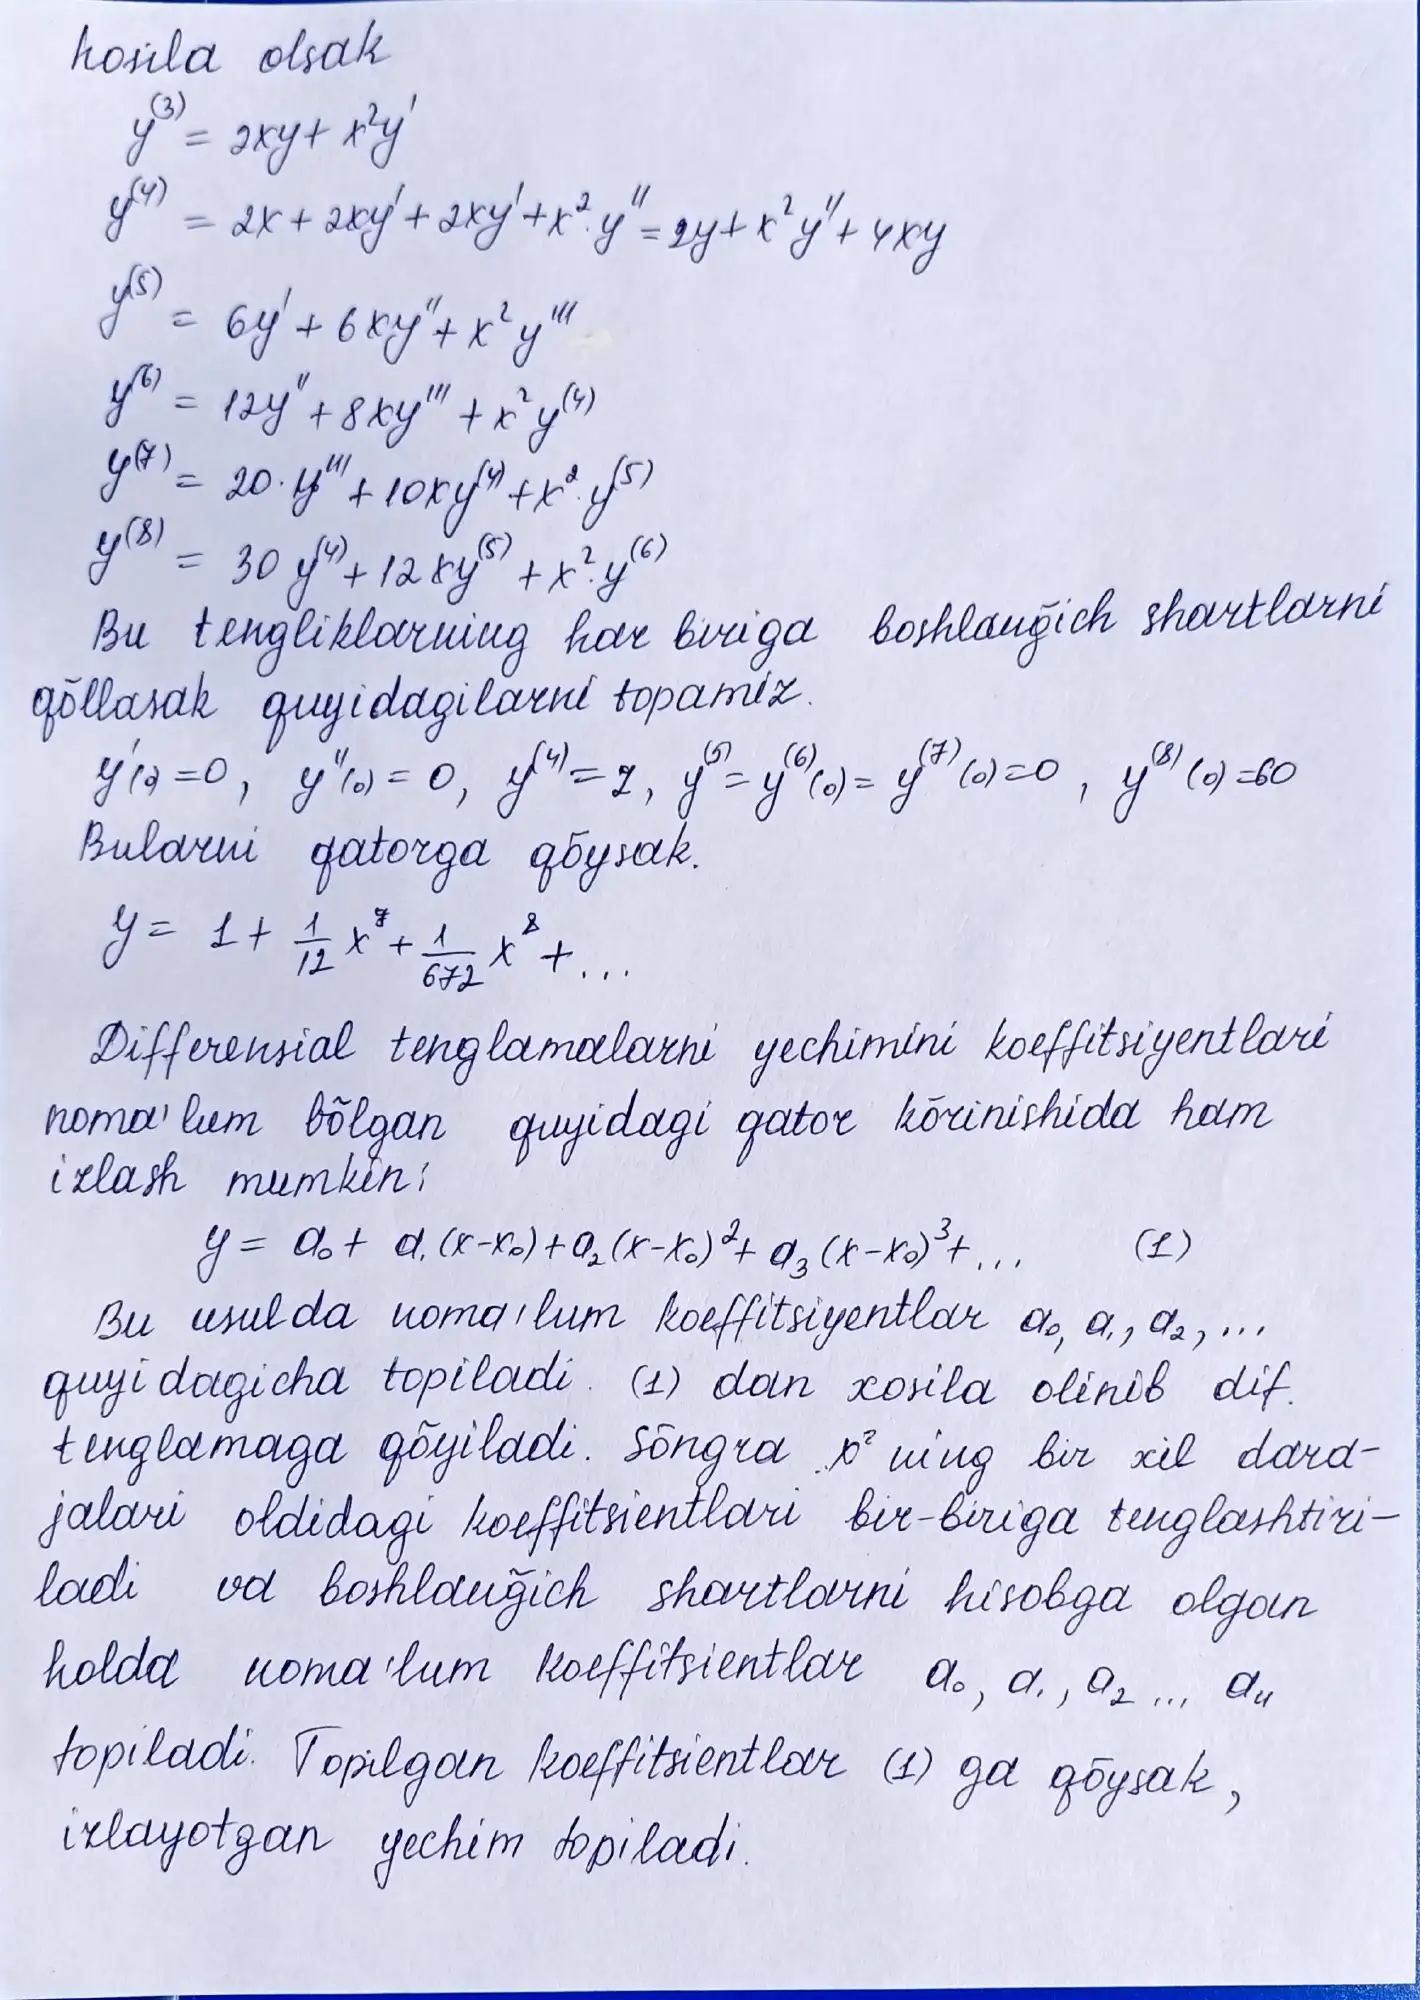 hosila olsak
y⁽³⁾ = 2xy + x²y'
y⁽⁴⁾ = 2x + 2xy' + 2xy' + x²·y'' = 2y + x²y'' + 4xy
y⁽⁵⁾ = 6y' + 6xy'' + x²y'''
y⁽⁶⁾ = 12y'' + 8xy''' + x²y⁽⁴⁾
y⁽⁷⁾ = 20·y''' + 10xy⁽⁴⁾ + x²·y⁽⁵⁾
y⁽⁸⁾ = 30y⁽⁴⁾ + 12xy⁽⁵⁾ + x²·y⁽⁶⁾
Bu tengliklarning har biriga boshlang̃ich shartlarni
qõllasak quyidagilarni topamiz.
y'(0) = 0, y''(0) = 0, y⁽⁴⁾ = 2, y⁽⁵⁾ = y⁽⁶⁾(0) = y⁽⁷⁾(0) = 0, y⁽⁸⁾(0) = 60
Bularni qatorga qõysak.
y = 1 + 1/12 x⁷ + 1/672 x⁸ + ...
Differensial tenglamalarni yechimini koeffitsiyentlari
noma'lum bõlgan quyidagi qator kõrinishida ham
izlash mumkin:
y = a₀ + a₁(x-x₀) + a₂(x-x₀)² + a₃(x-x₀)³ + ... (1)
Bu usulda noma'lum koeffitsiyentlar a₀, a₁, a₂, ...
quyidagicha topiladi. (1) dan xosila olinib dif.
tenglamaga qõyiladi. Sõngra x² ning bir xil dara-
jalari oldidagi koeffitsientlari bir-biriga tenglashtiri-
ladi va boshlang̃ich shartlarni hisobga olgan
holda noma'lum koeffitsientlar a₀, a₁, a₂ ... a₄
topiladi. Topilgan koeffitsientlar (1) ga qõysak,
izlayotgan yechim topiladi.